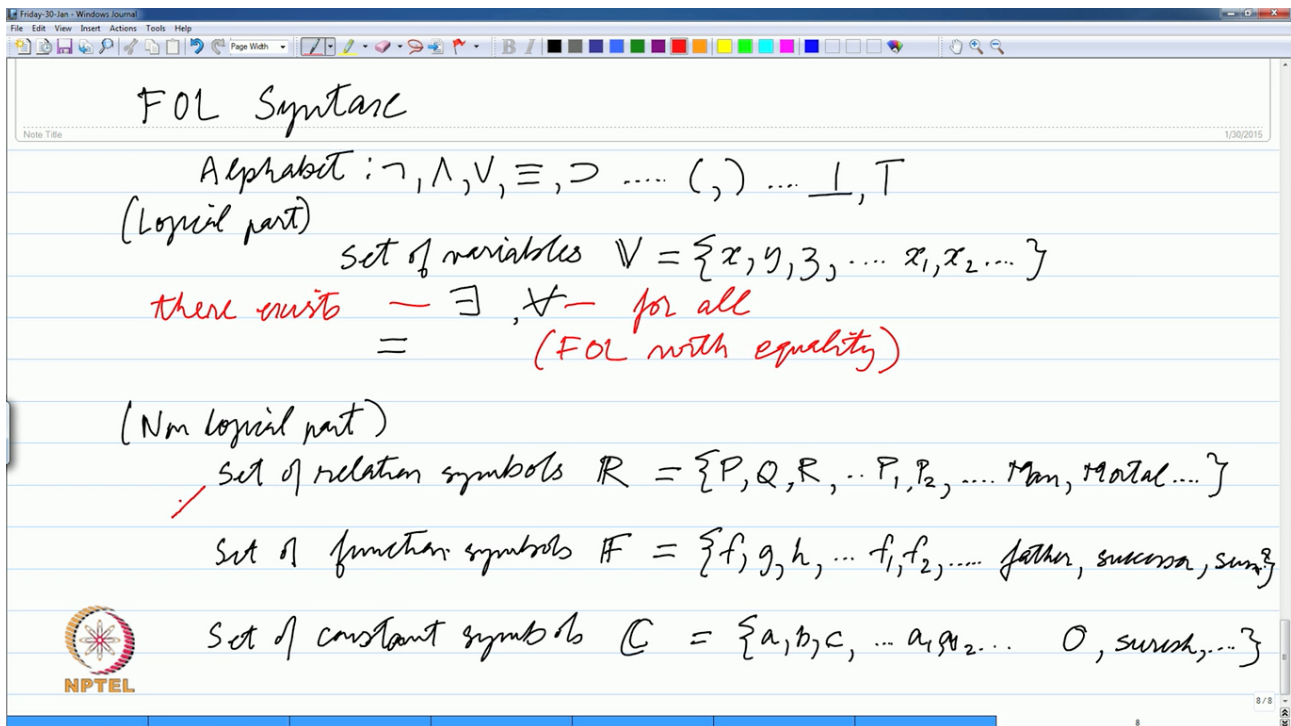 Friday-30-Jan - Windows Journal
File Edit View Insert Actions Tools Help
Page Width B I
FOL Syntax
Note Title 1/30/2015
Alphabet : ¬, ∧, ∨, ≡, ⊃ ..... (, ) .... ⊥, T
(Logical part)
Set of variables 𝕍 = {x, y, z, .... x₁, x₂ .... }
there exists — ∃ , ∀ — for all
= (FOL with equality)
(Non logical part)
Set of relation symbols ℝ = {P, Q, R, .. P₁, P₂, .... Man, Mortal .... }
Set of function symbols 𝔽 = {f, g, h, ... f₁, f₂, ..... father, successor, sum}
Set of constant symbols ℂ = {a, b, c, ... a₁, a₂ ... 0, suresh, ... }
NPTEL
8/8
8